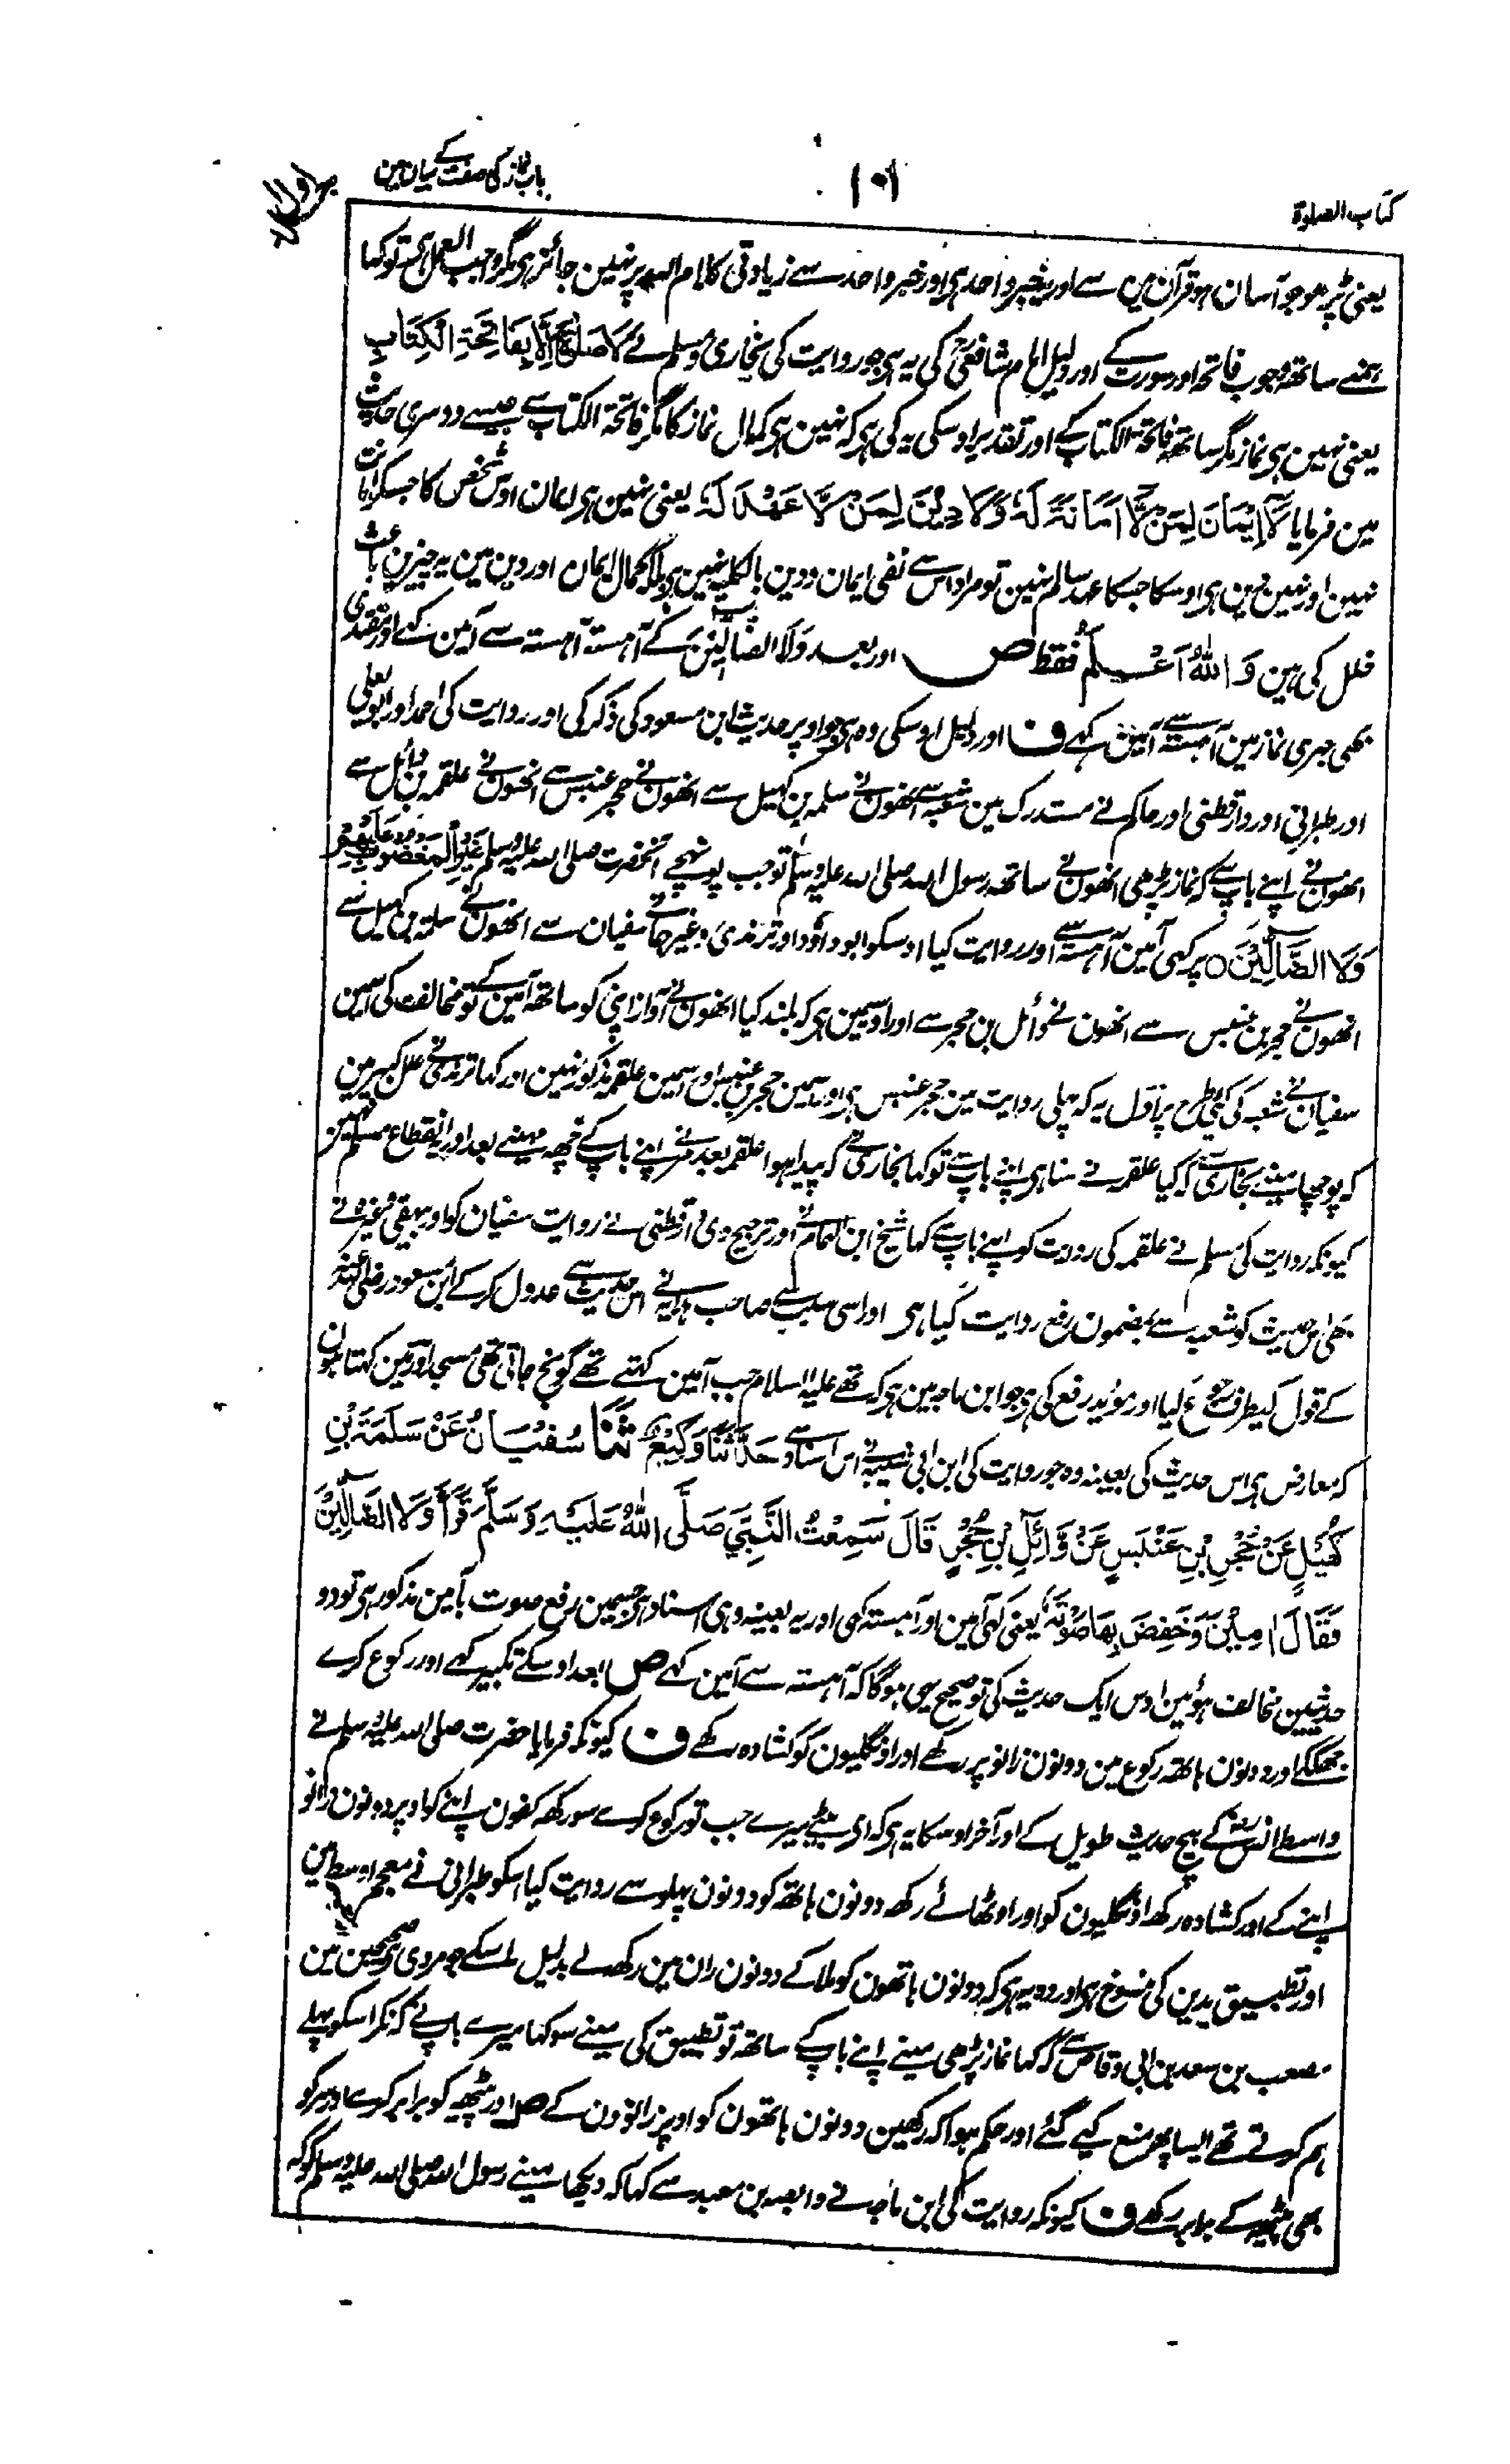 کتاب الصلوٰۃ
۱۰۱
باب نماز کی صفت کے بیان مین
یعنی پڑہو جو آسان ہو قرآن مین سے اور یہ خبر واحد ہی اور خبر واحد سے زیادتی کلام اللہ پر نہین جائز ہی مگر واجب العمل ہی تو کہا
ہمنے ساتھ وجوب فاتحہ اور سورت کے اور دلیل امام شافعی کی یہ ہی جو روایت کی بخاری و مسلم نے لَا صَلٰوۃَ اِلَّا بِفَاتِحَۃِ الْکِتَابِ
یعنی نہین ہی نماز مگر ساتھ فاتحۃ الکتاب کے اور تقدیر اوسکی یہ کی ہی کہ نہین ہی کمال نماز کا مگر فاتحۃ الکتاب سے جیسے دوسری حدیث
مین فرمایا لَا اِیْمَانَ لِمَنْ لَّا اَمَانَۃَ لَہٗ وَلَا دِیْنَ لِمَنْ لَّا عَھْدَ لَہٗ یعنی نہین ہی ایمان اوس شخص کا جسکو امانت
نہین اور نہین دین ہی اوسکا جسکا عہد سالم نہین تو مراد اس سے نفی ایمان و دین بالکلیہ نہین ہی بلکہ کمال ایمان اور دین مین یہ چیزین باعث
خلل کی ہین وَاللّٰہُ اَعْلَمُ فقط ص اور بعد وَلَا الضَّآلِّیْنَ کے آہستہ آہستہ سے آمین کہے اور مقتدی
بھی جہری نماز مین آہستہ سے آمین کہے ف اور دلیل اوسکی وہ ہی جو اوپر حدیث ابن مسعود کی ذکر کی اور روایت کی احمد اور ابو یعلی
اور طبرانی اور دارقطنی اور حاکم نے مستدرک مین شعبہ سے انھون نے سلمہ بن کہیل سے انھون نے حجر عنبس سے انھون نے علقمہ بن وائل سے
انھون نے اپنے باپ سے کہ نماز پڑھی انھون نے ساتھ رسول اللہ صلی اللہ علیہ وسلم تو جب پہونچے آنحضرت صلی اللہ علیہ وسلم غَیْرِ الْمَغْضُوْبِ عَلَیْھِمْ
وَلَا الضَّآلِّیْنَ ۝ پر کہی آمین آہستہ سے اور روایت کیا اوسکو ابو داؤد اور ترمذی وغیرہما نے سفیان سے انھون نے سلمہ بن کہیل سے
انھون نے حجر بن عنبس سے انھون نے وائل بن حجر سے اور اوسمین ہی کہ بلند کیا انھون نے آواز اپنی کو ساتھ آمین کے تو مخالفت کی اسمین
سفیان نے شعبہ کی کئی طرح پر اول یہ کہ پہلی روایت مین حجر عنبس ہی اور اسمین حجر بن عنبس اور اسمین علقمہ مذکور نہین اور کہا ترمذی نے علل کبیر مین
کہ پوچھا مینے بخاری سے کہ کیا علقمہ نے سنا ہی اپنے باپ سے تو کہا بخاری نے کہ پیدا ہوا علقمہ بعد مرنے اپنے باپ کے چھہ مہینے بعد اور یہ انقطاع مسلم نہین
کیونکہ روایت کی مسلم نے علقمہ کی روایت کو اپنے باپ سے کہا شیخ ابن الہمام نے اور ترجیح دی دارقطنی نے روایت سفیان کو اور بیہقی وغیرہ نے
بھی اس حدیث کو شعبہ سے بمضمون رفع روایت کیا ہی اور اسی سبب سے صاحب ہدایہ نے اس حدیث سے عدول کر کے ابن مسعود رضی اللہ عنہ
کے قول کیطرف رجوع کیا اور موید رفع کی ہی جو ابن ماجہ مین ہی کہ تھے علیہ السلام جب آمین کہتے تھے گونج جاتی تھی مسجد اور مین کہتا ہون
کہ معارض ہی اس حدیث کی بعینہ وہ جو روایت کی ابن ابی شیبہ نے اس اسناد سے حَدَّثَنَا وَکِیْعٌ ثَنَا سُفْیَانُ عَنْ سَلَمَۃَ بْنِ
کُھَیْلٍ عَنْ حُجْرِ بْنِ عَنْبَسٍ عَنْ وَّائِلِ بْنِ حُجْرٍ قَالَ سَمِعْتُ النَّبِیَّ صَلَّی اللّٰہُ عَلَیْہِ وَسَلَّمَ قَرَأَ وَلَا الضَّآلِّیْنَ
فَقَالَ اٰمِیْنَ وَخَفِضَ بِھَا صَوْتَہٗ یعنی کہی آمین اور آہستہ کہی اور یہ بعینہ وہی اسناد ہی جسمین رفع صوت بآمین مذکور ہی تو دو
حدیثین مخالف ہوئین اوس ایک حدیث کی تو صحیح یہی ہوگا کہ آہستہ سے آمین کہے ص بعد اوسکے تکبیر کہے اور رکوع کرے
جھککے اور دونون ہاتھ رکوع مین دونون زانو پر رکھے اور اونگلیون کو کشادہ رکھے ف کیونکہ فرمایا حضرت صلی اللہ علیہ وسلم نے
واسطے انس کے بیچ حدیث طویل کے اور آخر اوسکا یہ ہی کہ ای بیٹے میرے جب تو رکوع کرے سو رکھ کفون اپنے کو اوپر دونون زانو
اپنے کے اور کشادہ رکھ اونگلیون کو اور اوٹھائے رکھ دونون ہاتھ کو دونون پہلو سے روایت کیا اسکو طبرانی نے معجم اوسط مین
اور تطبیق یدین کی منسوخ ہی اور وہ یہ ہی کہ دونون ہاتھون کو ملا کے دونون ران مین رکھ لے بدلیل اسکے جو مروی ہی صحیحین مین
مصعب بن سعد بن ابی وقاص سے کہ کہا نماز پڑھی مینے اپنے باپ کے ساتھ تو تطبیق کی مینے سو کہا میرے باپ نے کہ نکر اسکو پہلے
ہم کرتے تھے ایسا پھر منع کیے گئے اور حکم ہوا کہ رکھین دونون ہاتھون کو اوپر زانوون کے ص اور پیٹھ کو برابر کرے اور سر کو
بھی پیٹھ کے برابر رکھے ف کیونکہ روایت کی ابن ماجہ نے وابصہ بن معبد سے کہا کہ دیکھا مینے رسول اللہ صلی اللہ علیہ وسلم کو کہ